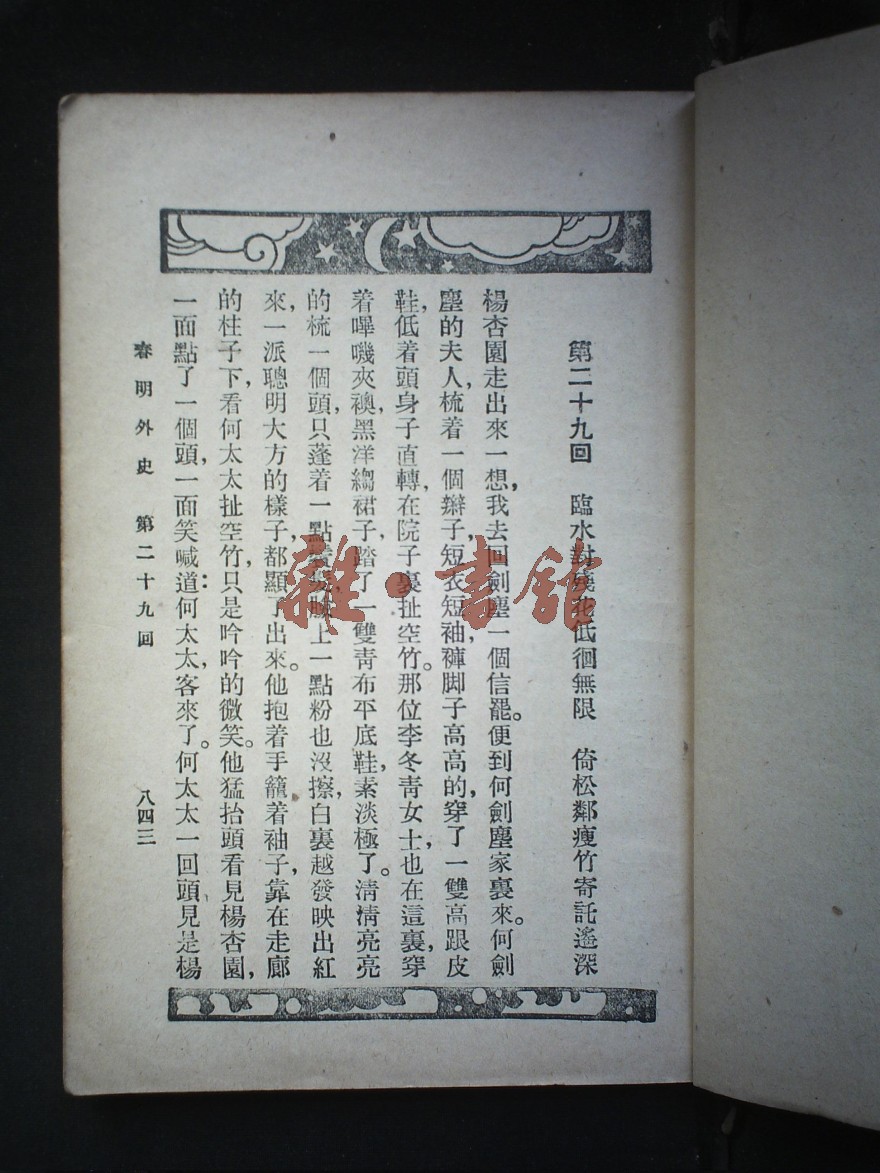 第二十九回 臨水對殘花低徊無限 倚松鄰瘦竹寄託遙深
楊杏園走出來一想，我去回劍塵一個信罷。便到何劍塵家裏來。何劍
塵的夫人，梳着一個辮子，短衣短袖，褲脚子高高的，穿了一雙高跟皮
鞋，低着頭，身子直轉，在院子裏扯空竹。那位李冬靑女士，也在這裏，穿
着嗶嘰夾襖，黑洋縐裙子，踏了一雙靑布平底鞋，素淡極了。淸淸亮亮
的梳一個頭，只蓬着一點髮，臉上一點粉也沒擦，白裏越發映出紅
來，一派聰明大方的樣子，都顯了出來。他抱着手籠着袖子，靠在走廊
的柱子下，看何太太扯空竹，只是吟吟的微笑。他猛抬頭看見楊杏園，
一面點了一個頭，一面笑喊道：何太太，客來了。何太太一回頭見是楊
春明外史 第二十九回 八四三
雜·書館